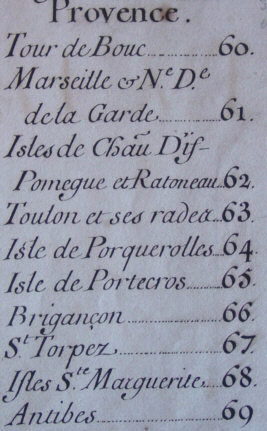 Provence.
Tour de Bouc 60.
Marseille & N.e D.e
de la Garde 61.
Isles de Chãu Dif–
Pomegue et Ratoneau 62
Toulon et ses rades 63
Isle de Porquerolles 64
Isle de Portecros 65
Brigançon 66
S.t Torpez 67
Isles S.te Marguerite 68
Antibes 69